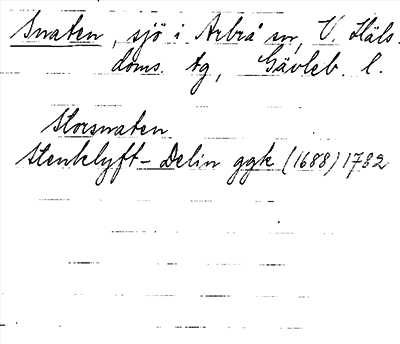 Snaten, sjö i Arbrå sn, V. Häls.
doms. tg, Gävleb. l.
Storsnaten
Stenklyft - Delin ggk (1688) 1782